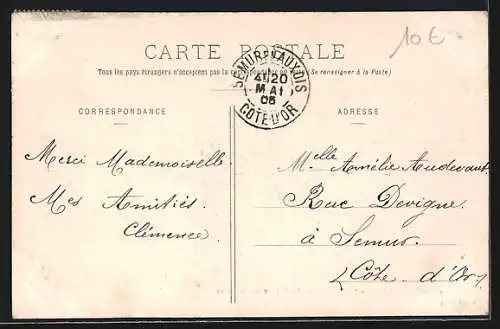 10€
CARTE POSTALE
Tous les pays étrangers n'acceptent pas la correspondance au (Se renseigner à la Poste)
SEMUR EN AUXOIS
4 20
MAI
05
COTE D'OR
CORRESPONDANCE
ADRESSE
Merci Mademoiselle.
Mes Amitiés.
Clémence
Melle Amélie Audevant
Rue Devigne.
à Semur.
(Côte d'Or)